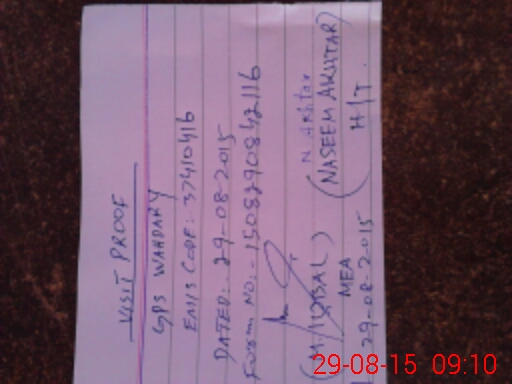 VISIT PROOF
GPS WAHDARY
EMIS CODE: 37410416
DATED: 29-08-2015
FORM NO:- 1508290842116
N. Akhtar
(M. IQBAL)
(NASEEM AKHTAR)
MEA
H/T
29-08-2015
29-08-15 09:10